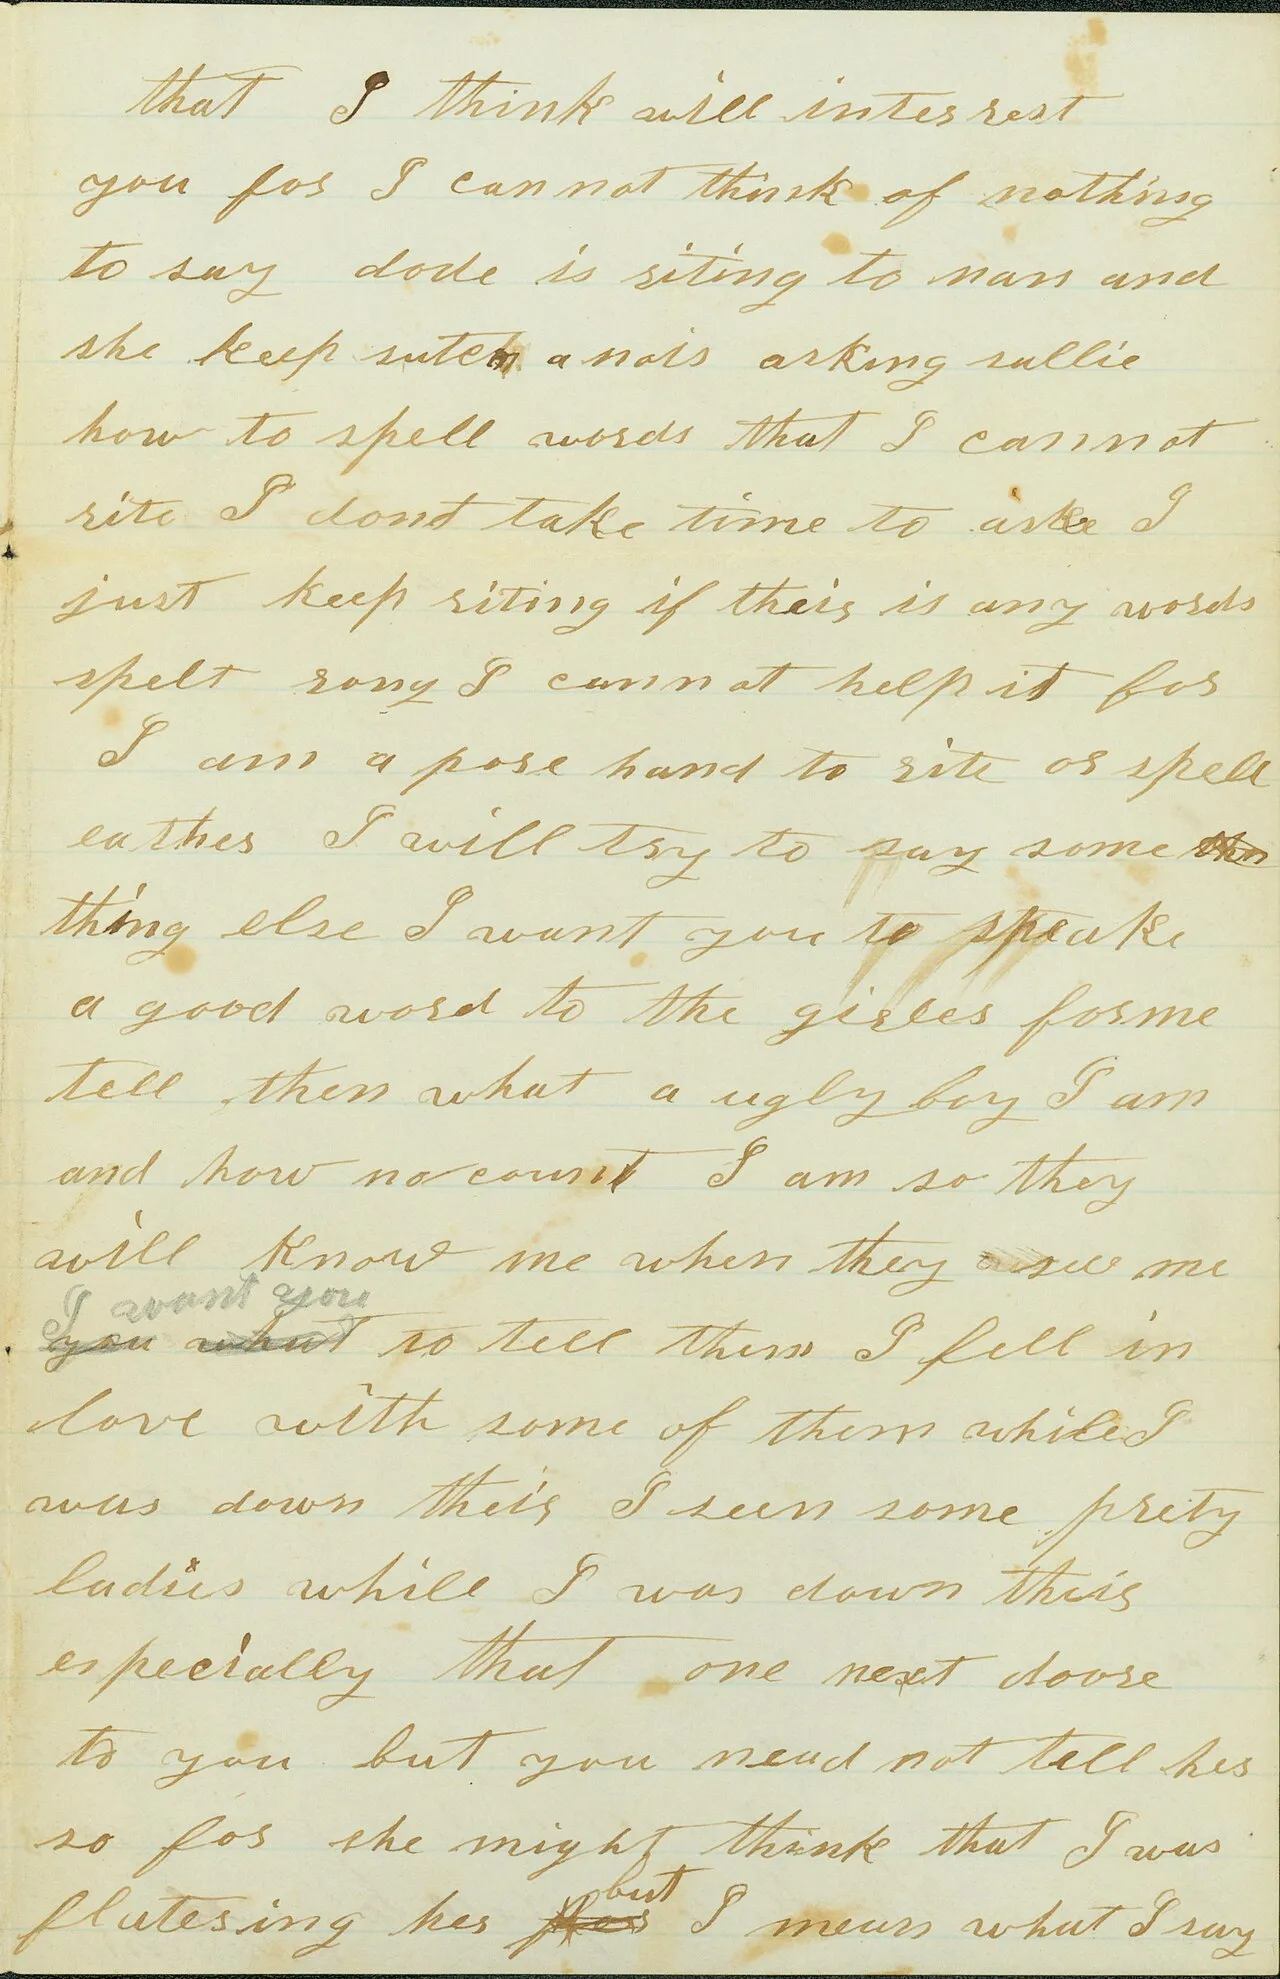 that I think will interrest
you for I cannot think of nothing
to say dode is riting to nan and
she keep sutch a nois asking sallie
how to spell words that I cannot
rite I dont take time to aske I
just keep riting if their is any words
spelt rong I cannot help it for
I am a pore hand to rite or spell
eather I will try to say some thin
thing else I want you to speake
a good word to the girles for me
tell then what a ugly boy I am
and how no count I am so they
will know me when they see me
I want you
you what to tell them I fell in
love with some of them while I
was down their I seen some prety
ladies while I was down their
especially that one next doore
to you but you nead not tell her
so for she might think that I was
flatering her but
for I mean what I say